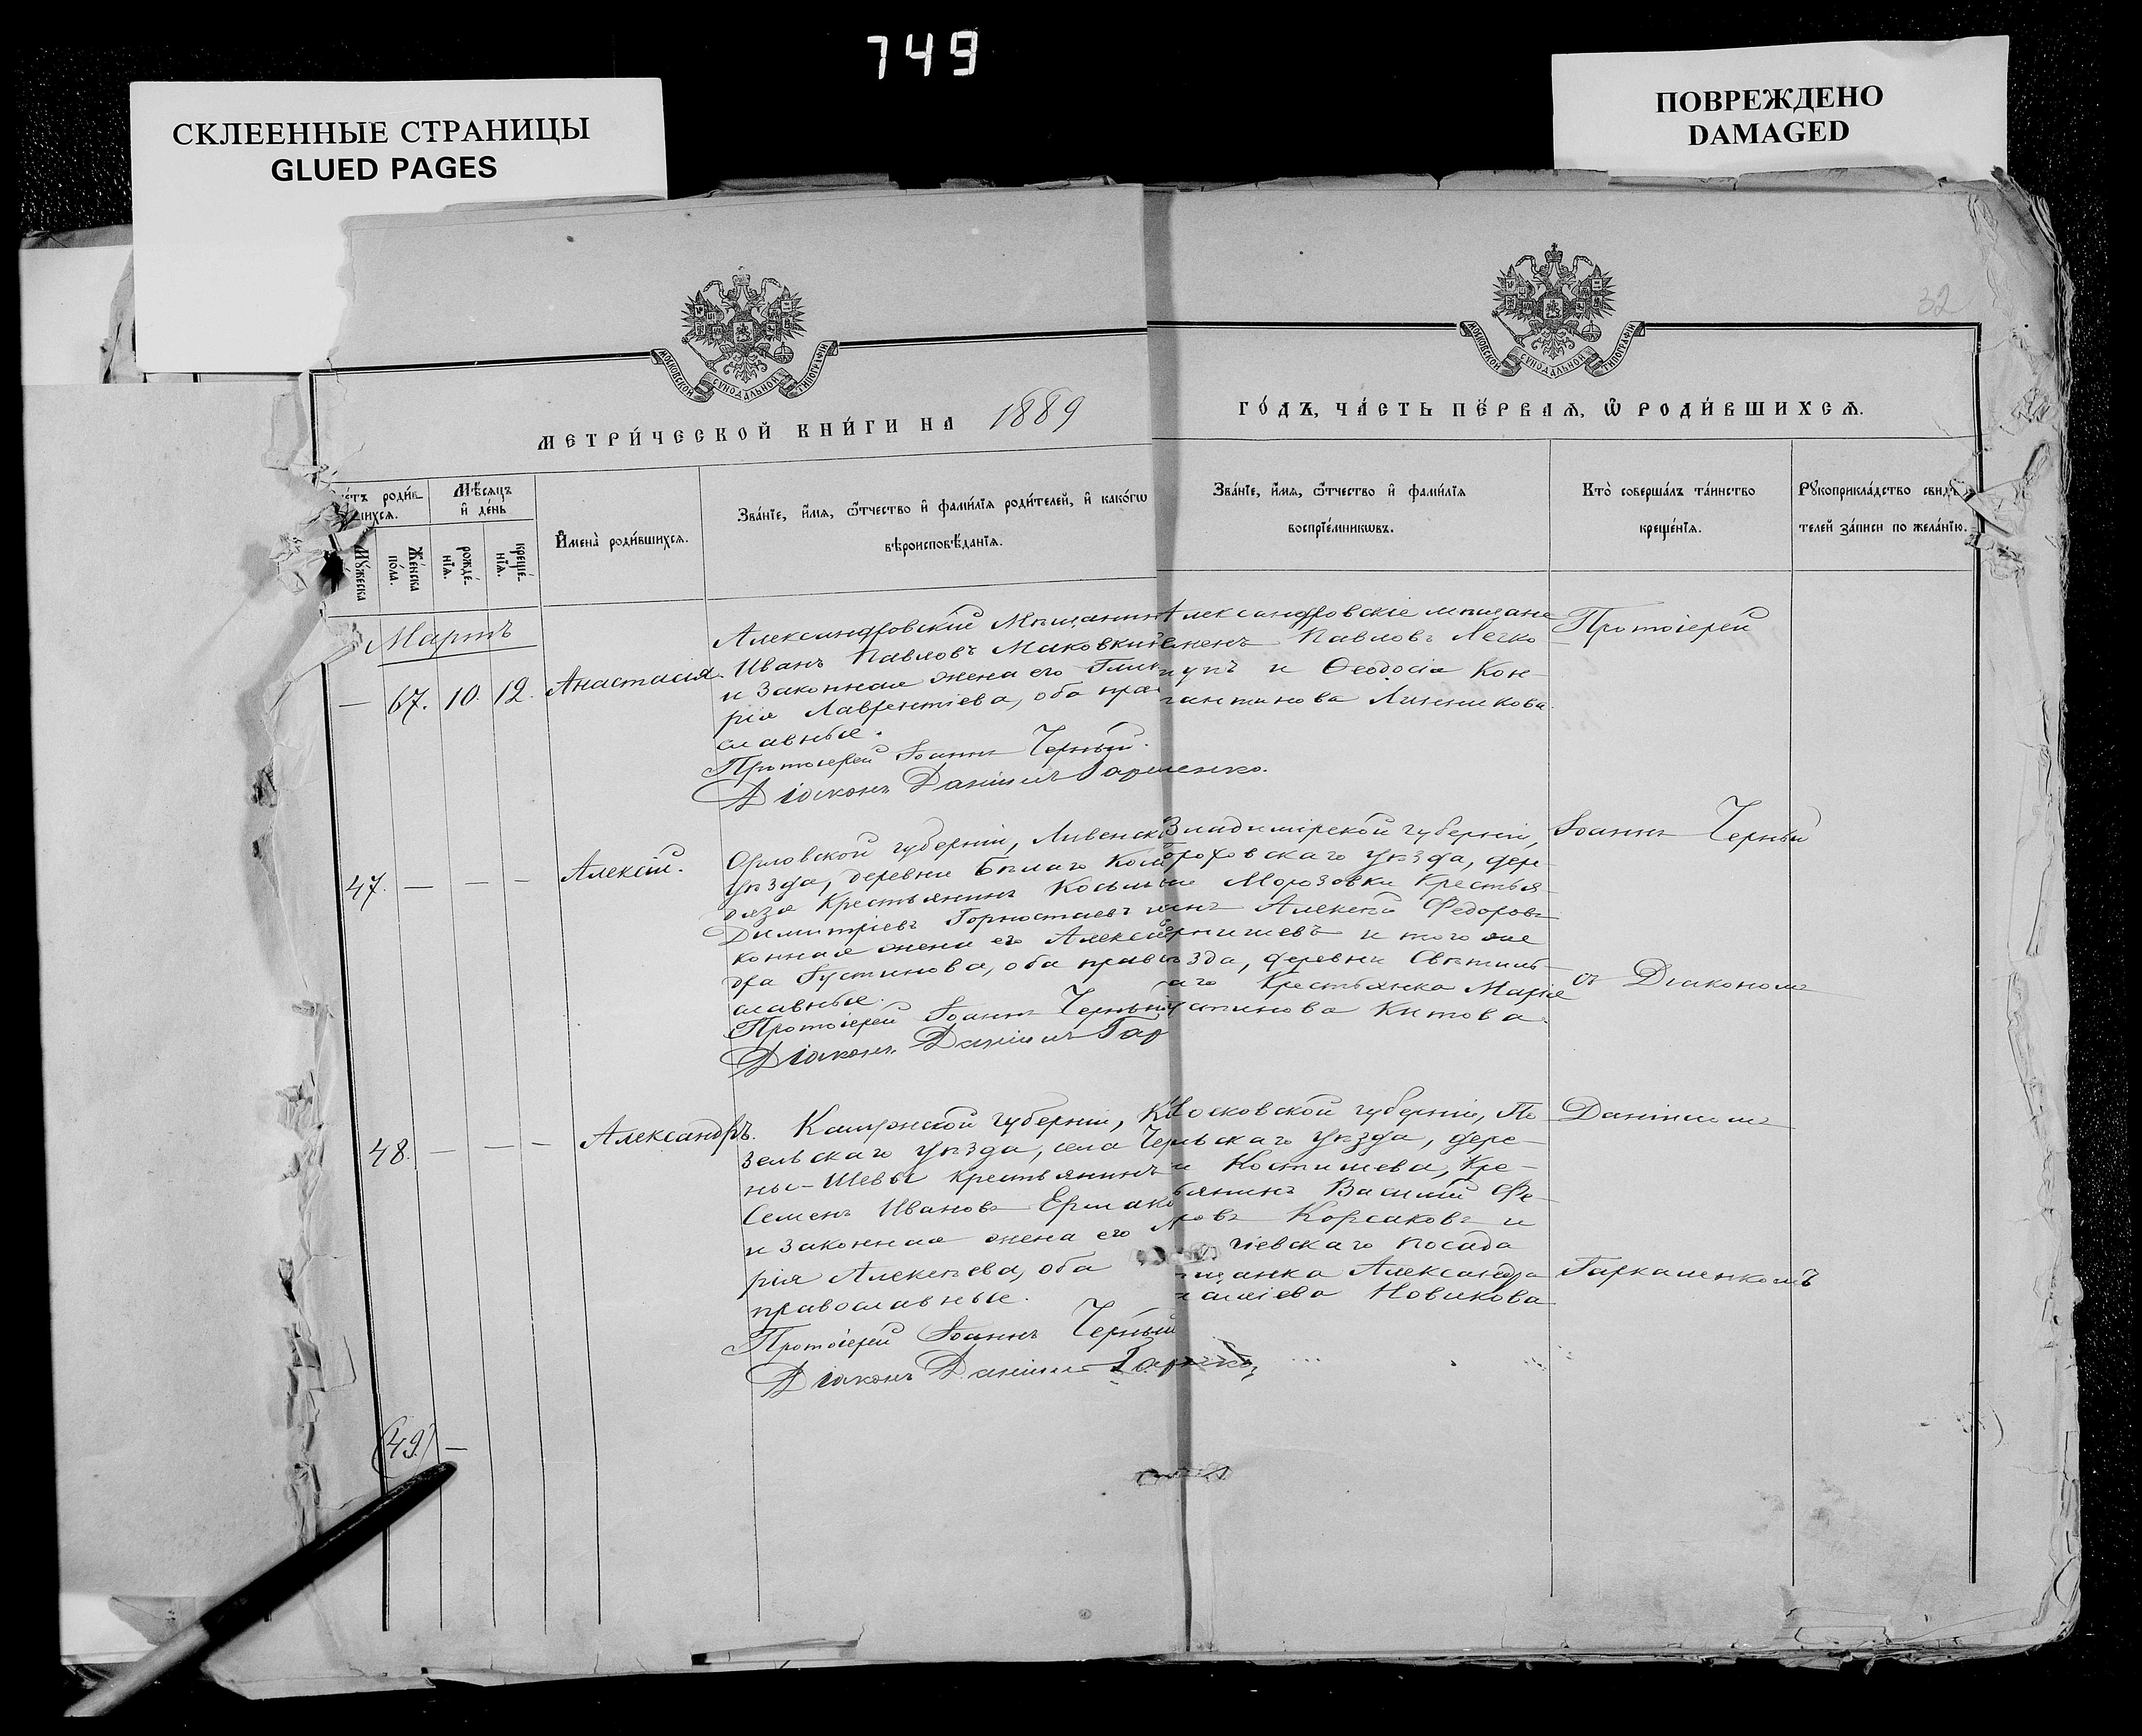 749
СКЛЕЕННЫЕ СТРАНИЦЫ
GLUED PAGES
ПОВРЕЖДЕНО
DAMAGED
32
МОСКОВСКОЙ СѴНОДАЛЬНОЙ ТИПОГРАФІИ
МОСКОВСКОЙ СѴНОДАЛЬНОЙ ТИПОГРАФІИ
МЕТРИ́ЧЕСКОЙ КНИ́ГИ НА 1889
ГО́ДЪ, ЧА́СТЬ ПЕ́РВАѦ, Ѡ҆ РОДИ́ВШИХСѦ.
роди́в
шихсѧ.
Мѣ́сѧцъ
и҆ де́нь
Мꙋ́жеска
Же́нска
по́ла.
рожде́-
нїѧ.
креще́-
нїѧ.
И҆мена̀ роди́вшихсѧ.
Зва́нїе, и҆́мѧ, ѻ҆́тчество и҆ фами́лїѧ роди́телей, и҆ како́гѡ
вѣроисповѣ́данїѧ.
Зва́нїе, и҆́мѧ, ѻ҆́тчество и҆ фами́лїѧ
воспрїе́мникѡвъ.
Кто̀ соверша́лъ та́инство
креще́нїѧ.
Рꙋкоприкла́дство свидѣ́-
телей за́писи по жела́нїю.
Мартъ
— 67. 10. 12. Анастасія.
Александровскій Мѣщанинъ
Иванъ Павловъ Маковкинъ
и законная жена его Глик
рія Лаврентіева, оба пра
славные.
Протоіерей Іоаннъ Черный.
Діаконъ Даніилъ
Александровскіе мѣщане
Павловъ Легко
и Ѳеодосія Кон-
Линникова.
Протоіерей
47. — — — Алексій.
Орловской губерніи, Ливенск
уѣзда, деревни Бѣлаго Коло
дязя Крестьянинъ Косьма
Димитріевъ Горностаевъ
конная жена его Алексан
дра Іустинова, оба прав
славные.
Протоіерей Іоаннъ Черный
Діаконъ Даніилъ Гар
Владимірской губерніи,
роховскаго уѣзда, дер-
Морозовки Крестья-
нинъ Алексѣй Федоровъ
и того же
ѣзда, деревни
аго Крестьянка Марія
стинова Китова.
Іоаннъ Черный
съ Діакономъ
48. — — — Александръ.
Калужской губерніи, К
зельскаго уѣзда, села Чер
ны-Шевы крестьянинъ
Семенъ Ивановъ Ермако
и законная жена его
рія Алексѣева, оба
православные.
Протоіерей Іоаннъ Черный
Діаконъ Даніилъ
Московской губерніи, По
льскаго уѣзда, дере-
Костишева, Кре-
ьянинъ Василій Фе-
ровъ Корсаковъ и
гіевскаго посада
щанка Александра
Новикова
Даніиломъ
Гаркаленкомъ
(49.) —